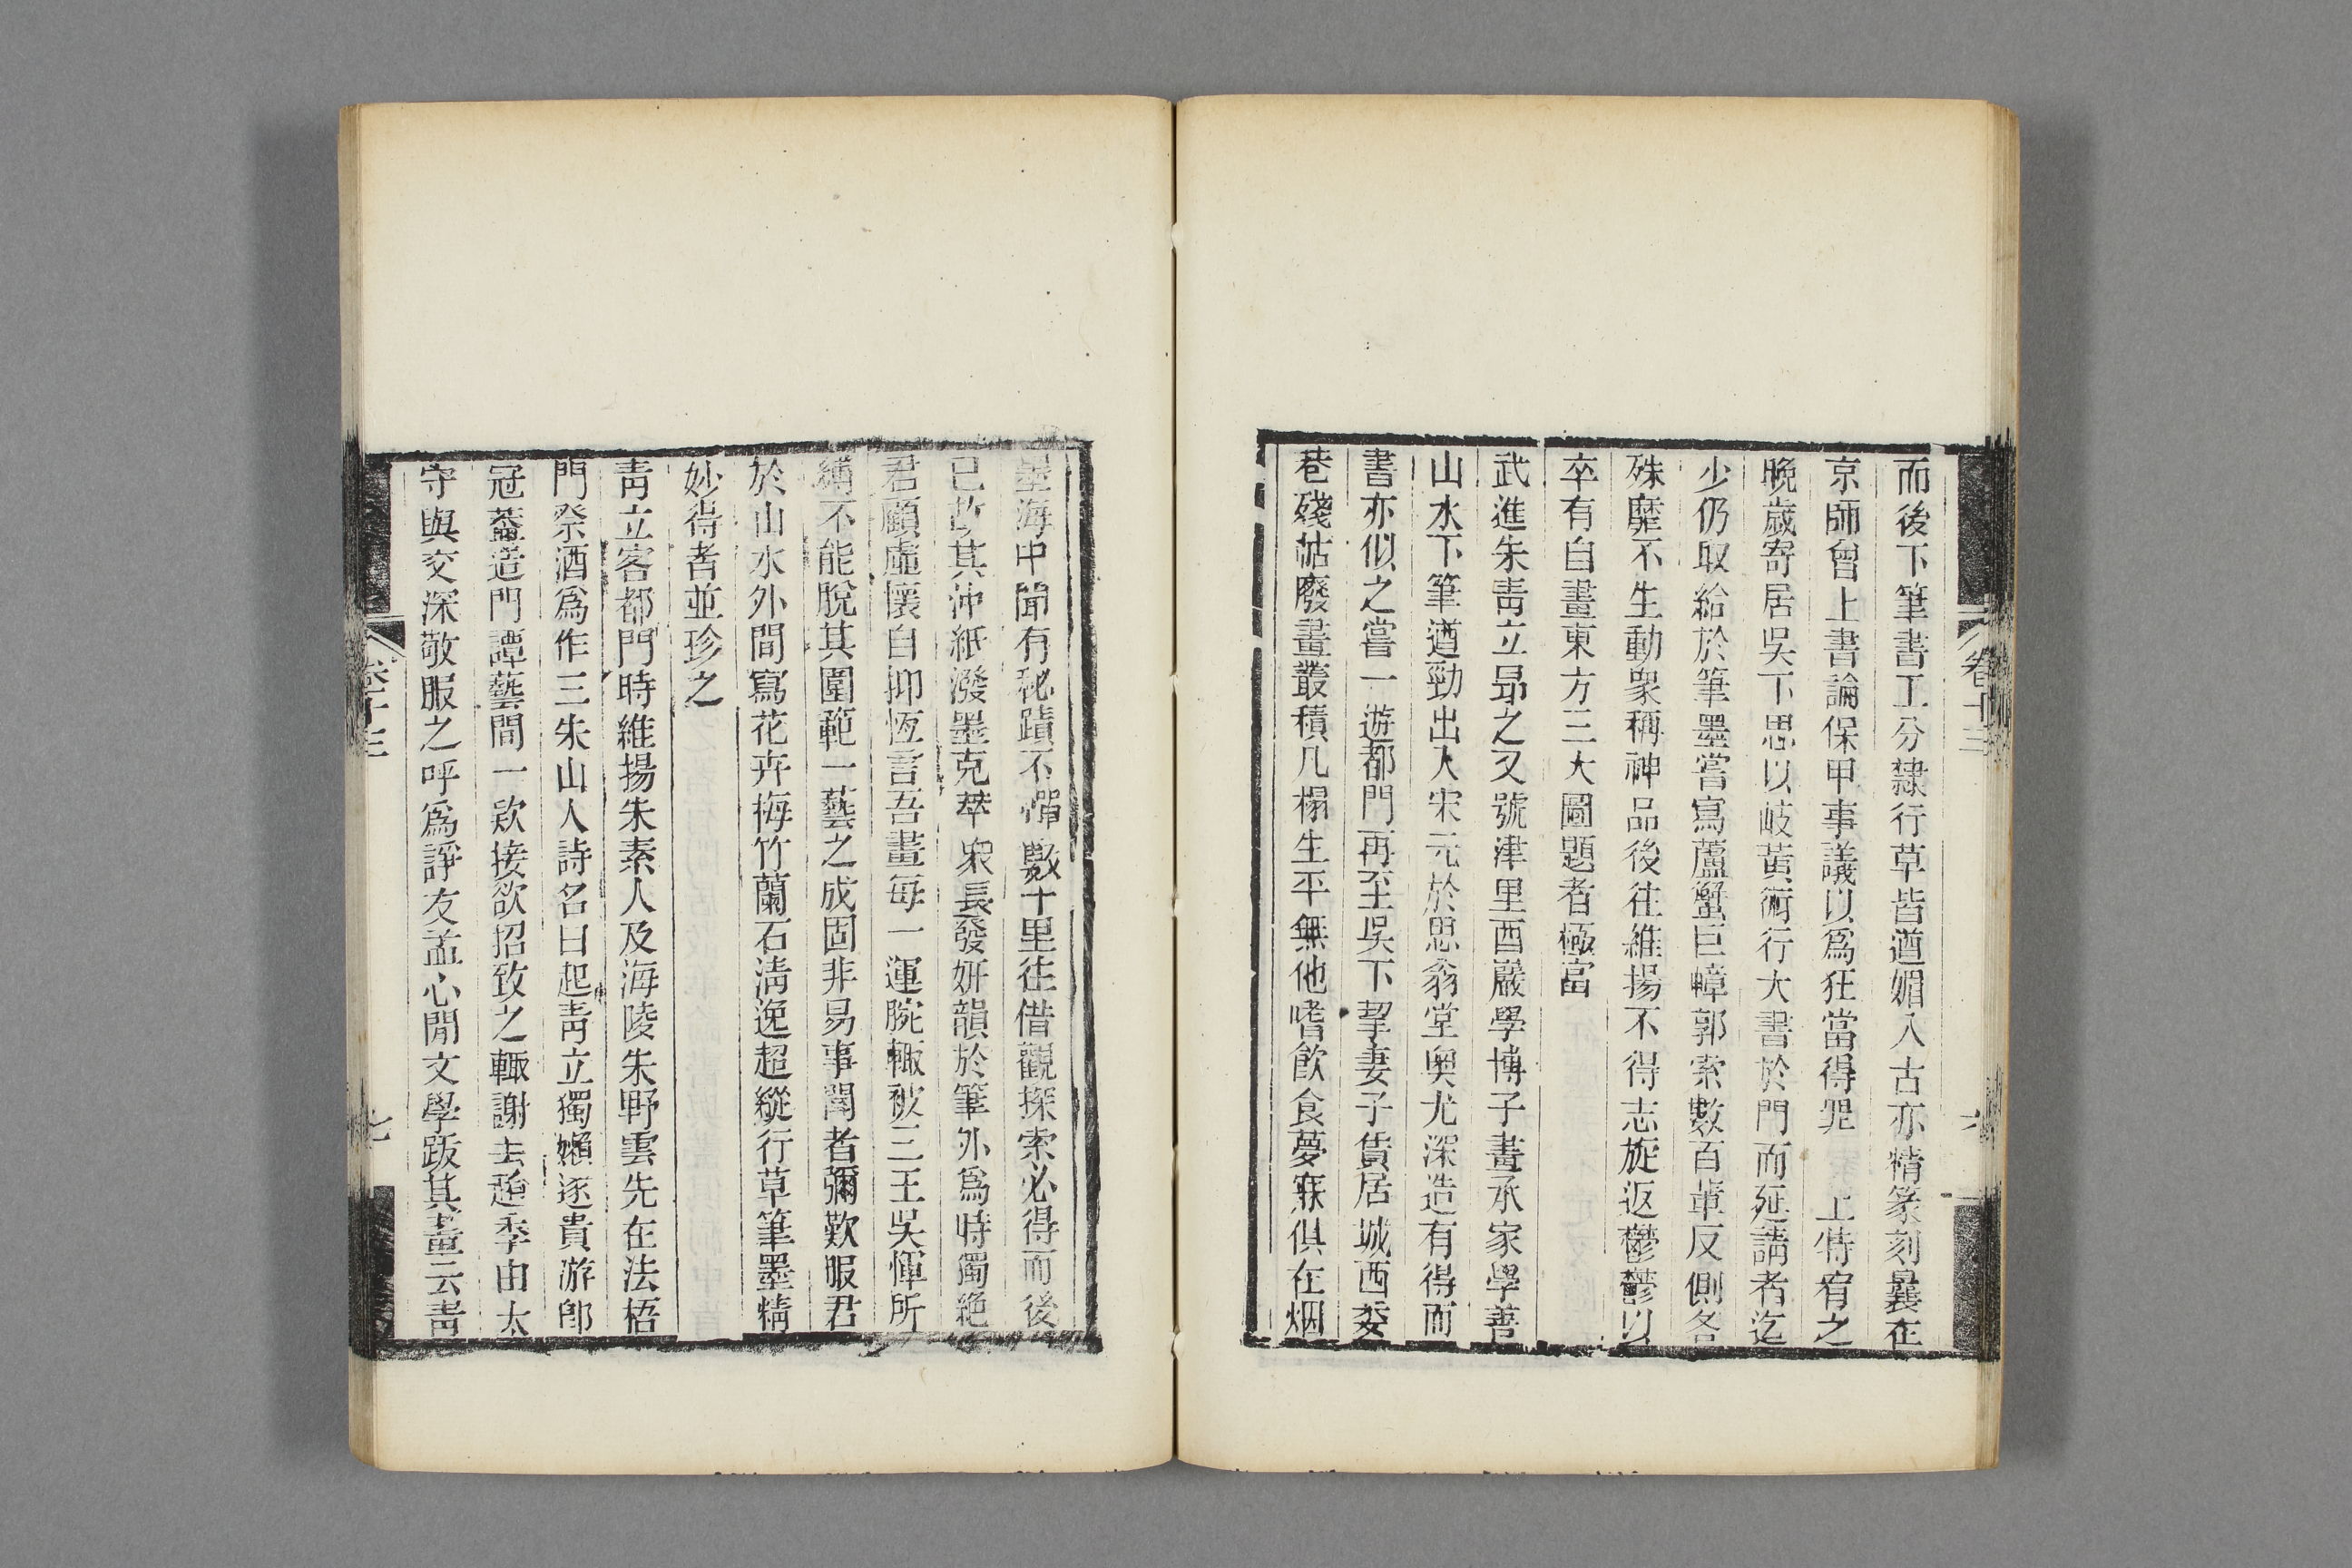 而後下筆書工分隸行草皆遒媚入古亦精篆刻曩在
京師曾上書論保甲事議以爲狂當得罪 上特宥之
晚歲寄居吳下思以岐黃術行大書於門而延請者迄
少仍取給於筆墨嘗寫蘆蟹巨幛郭索數百輩反側各
殊靡不生動衆稱神品後往維揚不得志旋返鬱鬱以
卒有自畫東方三大圖題者極富
武進朱靑立昂之又號津里酉巖學博子畫承家學善
山水下筆遒勁出入宋元於思翁堂奥尤深造有得而
書亦似之嘗一遊都門再至吳下挈妻子賃居城西委
巷殘帖廢畫叢積几榻生平無他嗜飮食夢寐俱在烟
卷十三
六
墨海中聞有秘蹟不憚數十里往借觀探索必得而後
已故其沖紙潑墨克萃衆長發妍韻於筆外爲時獨絶
君顧虛懷自抑恆言吾畫每一運腕輒被三王吳惲所
縛不能脫其圍範一藝之成固非易事聞者彌歎服君
於山水外間寫花卉梅竹蘭石淸逸超縱行草筆墨精
妙得者並珍之
靑立客都門時維揚朱素人及海陵朱野雲先在法梧
門祭酒爲作三朱山人詩名曰起靑立獨嬾逐貴游卽
冠蓋造門譚藝間一欵接欲招致之輒謝去趙季由太
守與交深敬服之呼爲諍友孟心閒文學跋其畫云靑
卷十三
七